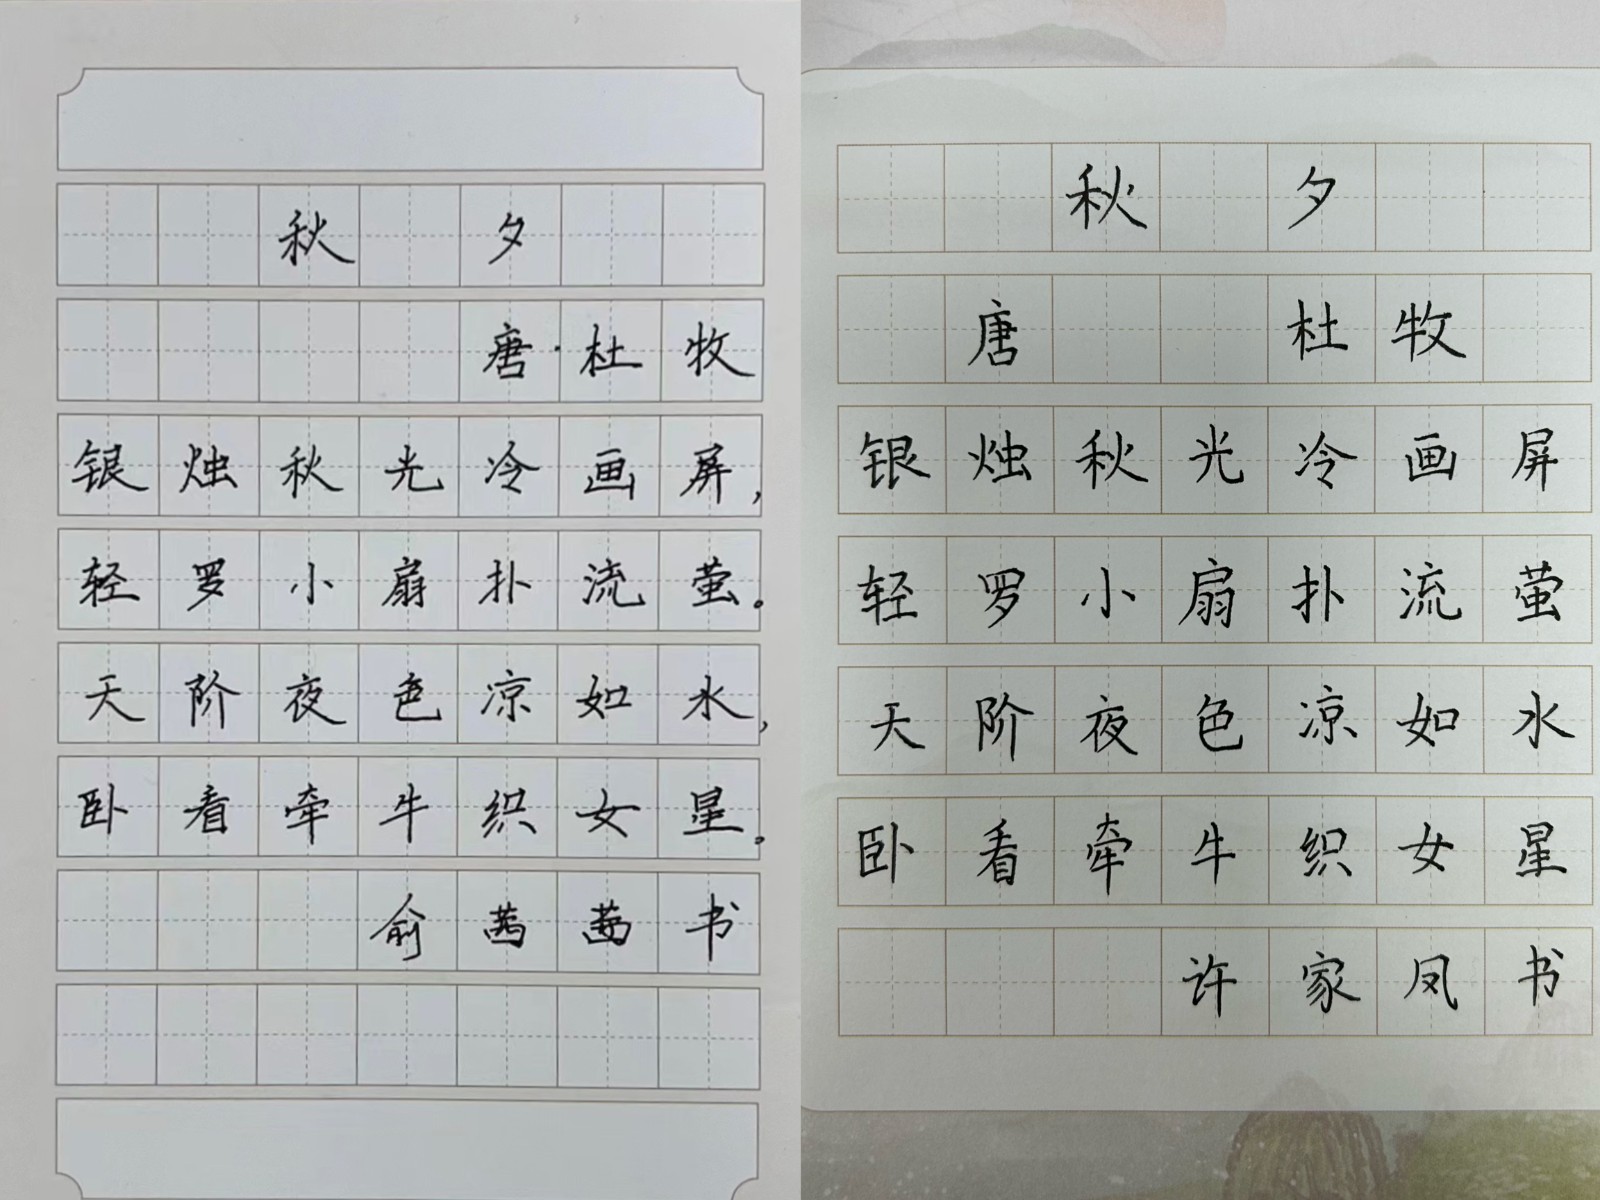 秋夕
唐·杜牧
银烛秋光冷画屏，
轻罗小扇扑流萤。
天阶夜色凉如水，
卧看牵牛织女星。
俞茜茜书
秋夕
唐 杜牧
银烛秋光冷画屏
轻罗小扇扑流萤
天阶夜色凉如水
卧看牵牛织女星
许家凤书